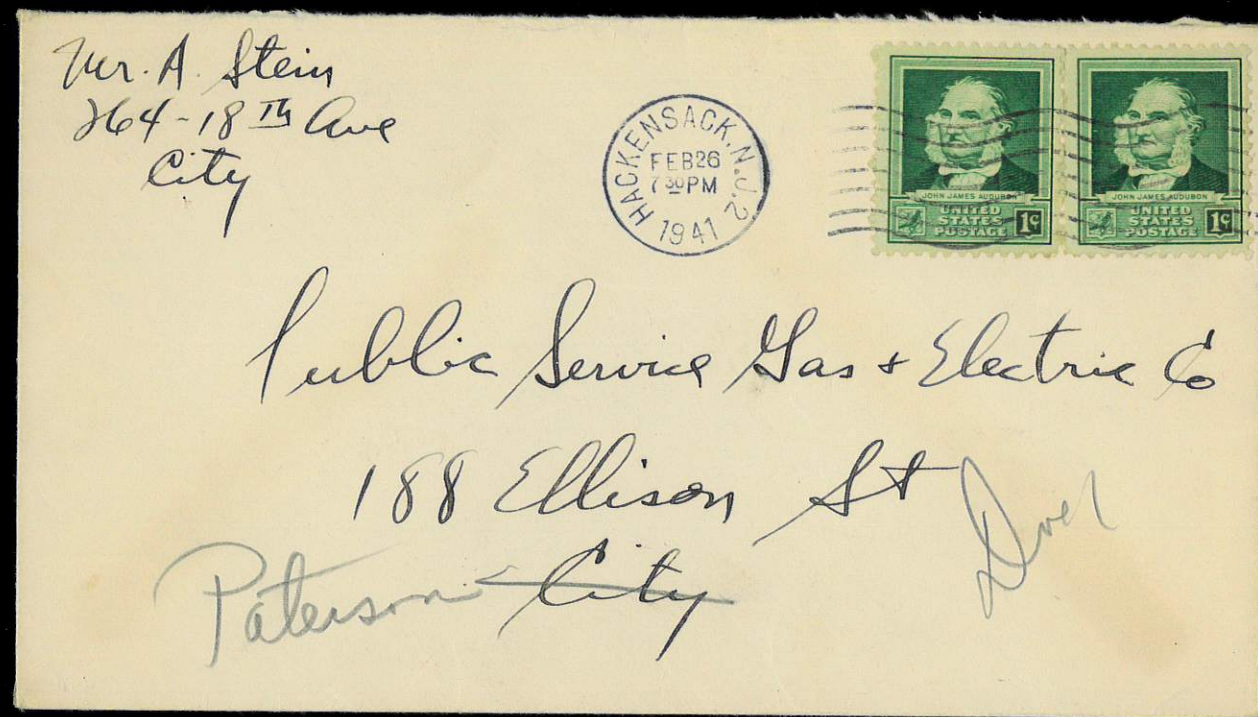 Mr. A. Stein
264-18th Ave
City
HACKENSACK, N.J. 2
FEB 26
7 30 PM
1941
JOHN JAMES AUDUBON
UNITED
STATES
POSTAGE
1¢
JOHN JAMES AUDUBON
UNITED
STATES
POSTAGE
1¢
Public Service Gas + Electric Co
188 Ellison St
Paterson City